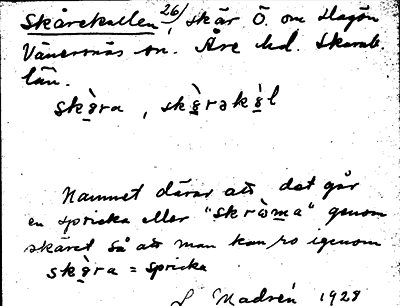 Skårekullen 26/, skär Ö. om Hagön
Vänersnäs sn. Åse hd. Skarab.
län.
skè̱ra, skè̱rəkè̱l
Namnet därav att det går
en spricka eller "skrò̱ma" genom
skäret så att man kan ro igenom
skè̱ra = spricka
1928